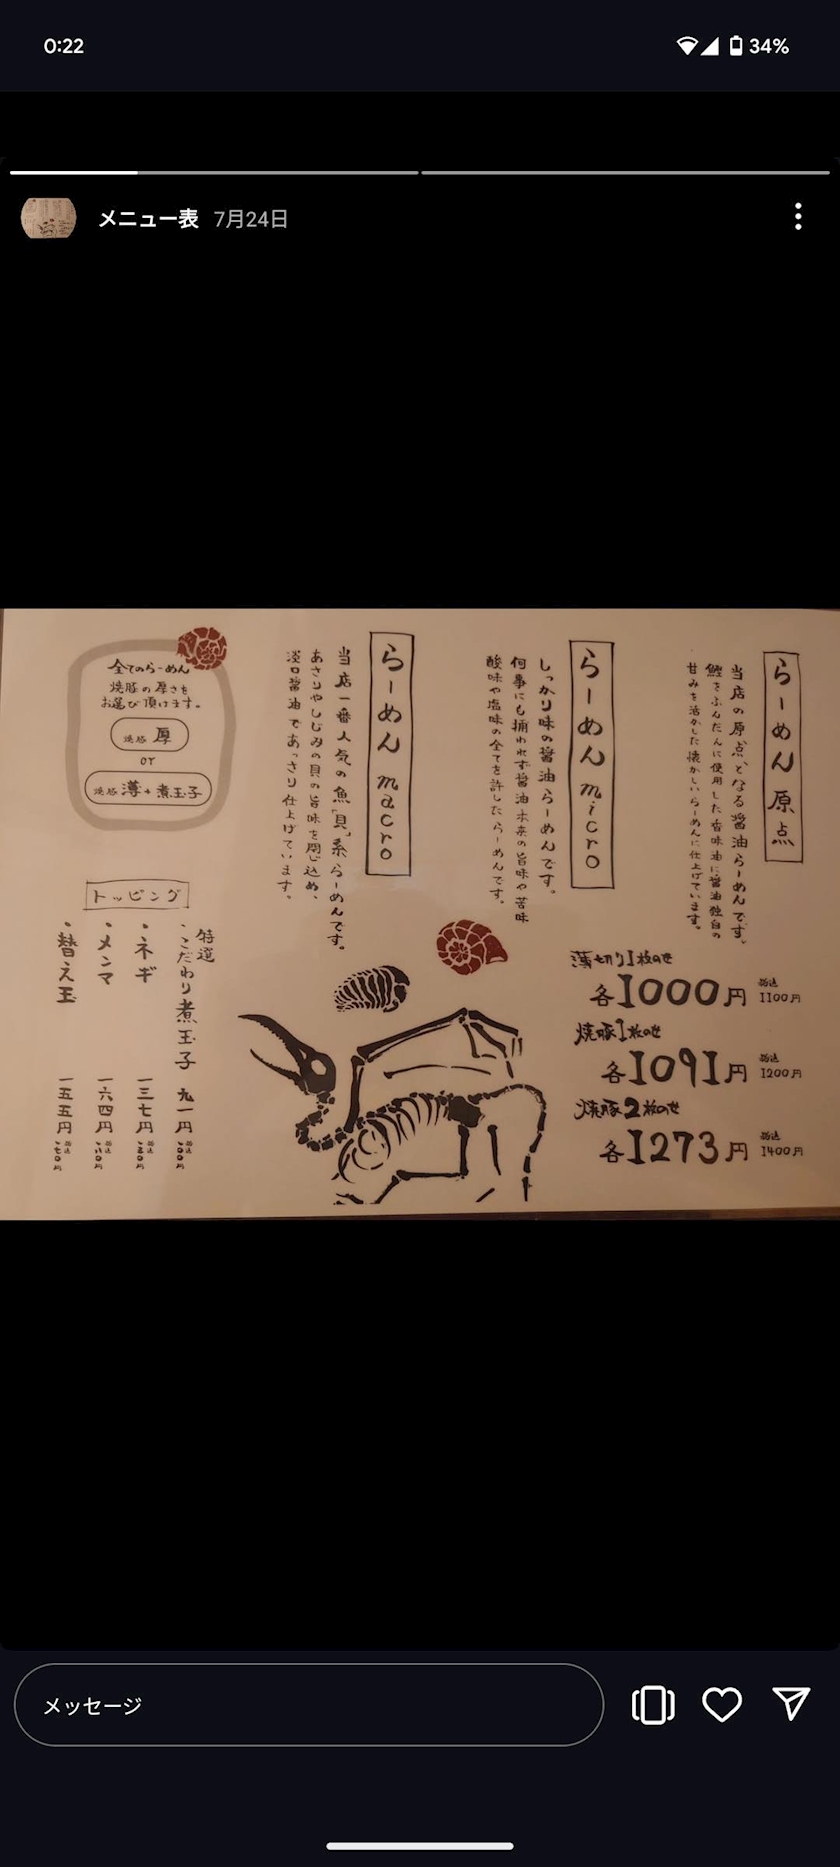 0:22
34%
メニュー表 7月24日
らーめん 原点
当店の原点となる醤油らーめんです。
鰹をふんだんに使用した香味油に醤油独自の
甘みを活かした懐かしいらーめんに仕上げています。
らーめん micro
しっかり味の醤油らーめんです。
何事にも捕われず醤油本来の旨味や苦味
酸味や塩味の全てを許したらーめんです。
らーめん macro
当店一番人気の魚「貝」系らーめんです。
あさりやしじみの貝の旨味を閉じ込め、
淡口醤油であっさり仕上げています。
薄切り1枚のせ
各1000円 税込1100円
焼豚1枚のせ
各1091円 税込1200円
焼豚2枚のせ
各1273円 税込1400円
全てのらーめん
焼豚の厚さを
お選び頂けます。
焼豚 厚
or
焼豚 薄+煮玉子
トッピング
・特選こだわり煮玉子 九一円 税込一〇〇円
・ネギ 一三七円
・メンマ 一六四円
・替え玉 一五五円
メッセージ